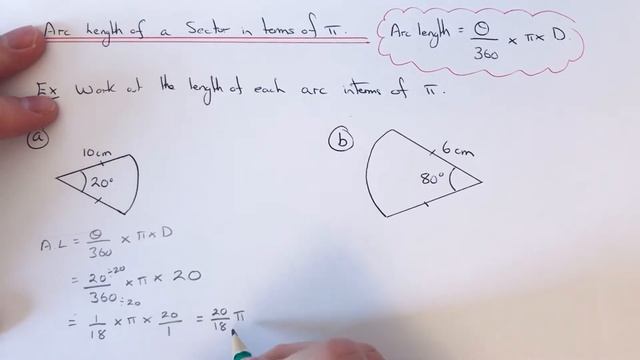 Arc Length of a Sector in terms of π.
Arc length = θ/360 × π × D.
Ex Work out the length of each arc in terms of π.
a
10cm
20°
b
6cm
80°
A.L = θ/360 × π × D
= 20÷20/360÷20 × π × 20
= 1/18 × π × 20/1 = 20/18 π